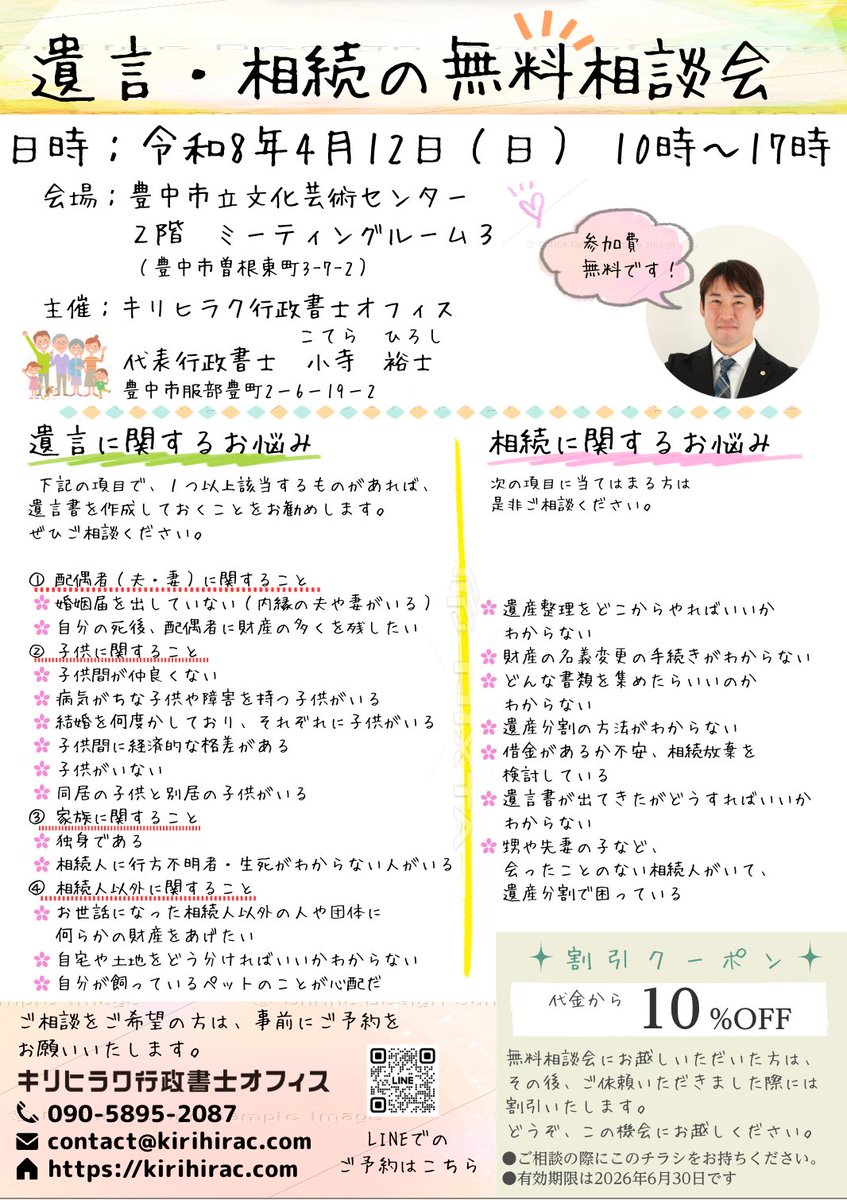 遺言・相続の無料相談会
日時；令和8年4月12日（日） 10時～17時
会場；豊中市立文化芸術センター
2階 ミーティングルーム3
（豊中市曽根東町3-7-2）
参加費
無料です！
主催；キリヒラク行政書士オフィス
こてら ひろし
代表行政書士 小寺 裕士
豊中市服部豊町2－6－19－2
遺言に関するお悩み
下記の項目で、1つ以上該当するものがあれば、
遺言書を作成しておくことをお勧めします。
ぜひご相談ください。
① 配偶者（夫・妻）に関すること
婚姻届を出していない（内縁の夫や妻がいる）
自分の死後、配偶者に財産の多くを残したい
② 子供に関すること
子供間が仲良くない
病気がちな子供や障害を持つ子供がいる
結婚を何度かしており、それぞれに子供がいる
子供間に経済的な格差がある
子供がいない
同居の子供と別居の子供がいる
③ 家族に関すること
独身である
相続人に行方不明者・生死がわからない人がいる
④ 相続人以外に関すること
お世話になった相続人以外の人や団体に
何らかの財産をあげたい
自宅や土地をどう分ければいいかわからない
自分が飼っているペットのことが心配だ
相続に関するお悩み
次の項目に当てはまる方は
是非ご相談ください。
遺産整理をどこからやればいいか
わからない
財産の名義変更の手続きがわからない
どんな書類を集めたらいいのか
わからない
遺産分割の方法がわからない
借金があるか不安、相続放棄を
検討している
遺言書が出てきたがどうすればいいか
わからない
甥や先妻の子など、
会ったことのない相続人がいて、
遺産分割で困っている
ご相談をご希望の方は、事前にご予約を
お願いいたします。
キリヒラク行政書士オフィス
090-5895-2087
contact@kirihirac.com
https://kirihirac.com
LINE
LINEでの
ご予約はこちら
割引クーポン
代金から 10%OFF
無料相談会にお越しいただいた方は、
その後、ご依頼いただきました際には
割引いたします。
どうぞ、この機会にお越しください。
●ご相談の際にこのチラシをお持ちください。
●有効期限は2026年6月30日です